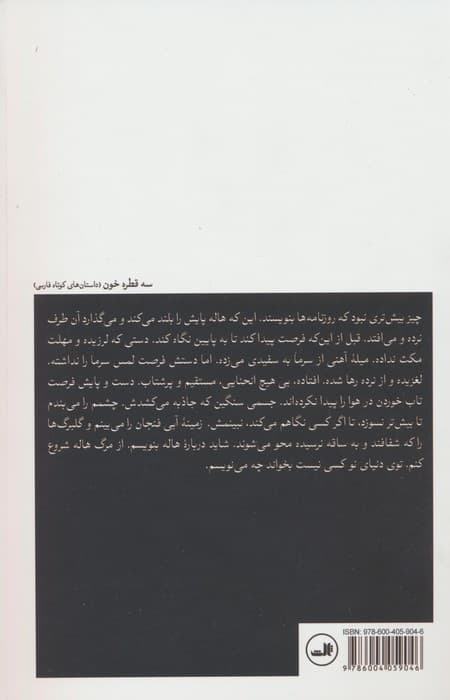 سه قطره خون (داستان‌های کوتاه فارسی)
چیز بیش‌تری نبود که روزنامه‌ها بنویسند. این که هاله پایش را بلند می‌کند و می‌گذارد آن طرف
نرده و می‌افتد. قبل از این‌که فرصت پیدا کند تا به پایین نگاه کند. دستی که لرزیده و مهلت
مکث نداده. میلهٔ آهنی از سرما به سفیدی می‌زده. اما دستش فرصت لمس سرما را نداشته،
لغزیده و از نرده رها شده. افتاده، بی هیچ انحنایی، مستقیم و پرشتاب. دست و پایش فرصت
تاب خوردن در هوا را پیدا نکرده‌اند. جسمی سنگین که جاذبه می‌کشدش. چشمم را می‌بندم
تا بیش‌تر نسوزد، تا اگر کسی نگاهم می‌کند، نبینمش. زمینهٔ آبی فنجان را می‌بینم و گلبرگ‌ها
را که شفافند و به ساقه نرسیده محو می‌شوند. شاید دربارهٔ هاله بنویسم. از مرگ هاله شروع
کنم. توی دنیای نو کسی نیست بخواند چه می‌نویسم.
ISBN: 978-600-405-904-6
ثالث
9 786004 059046